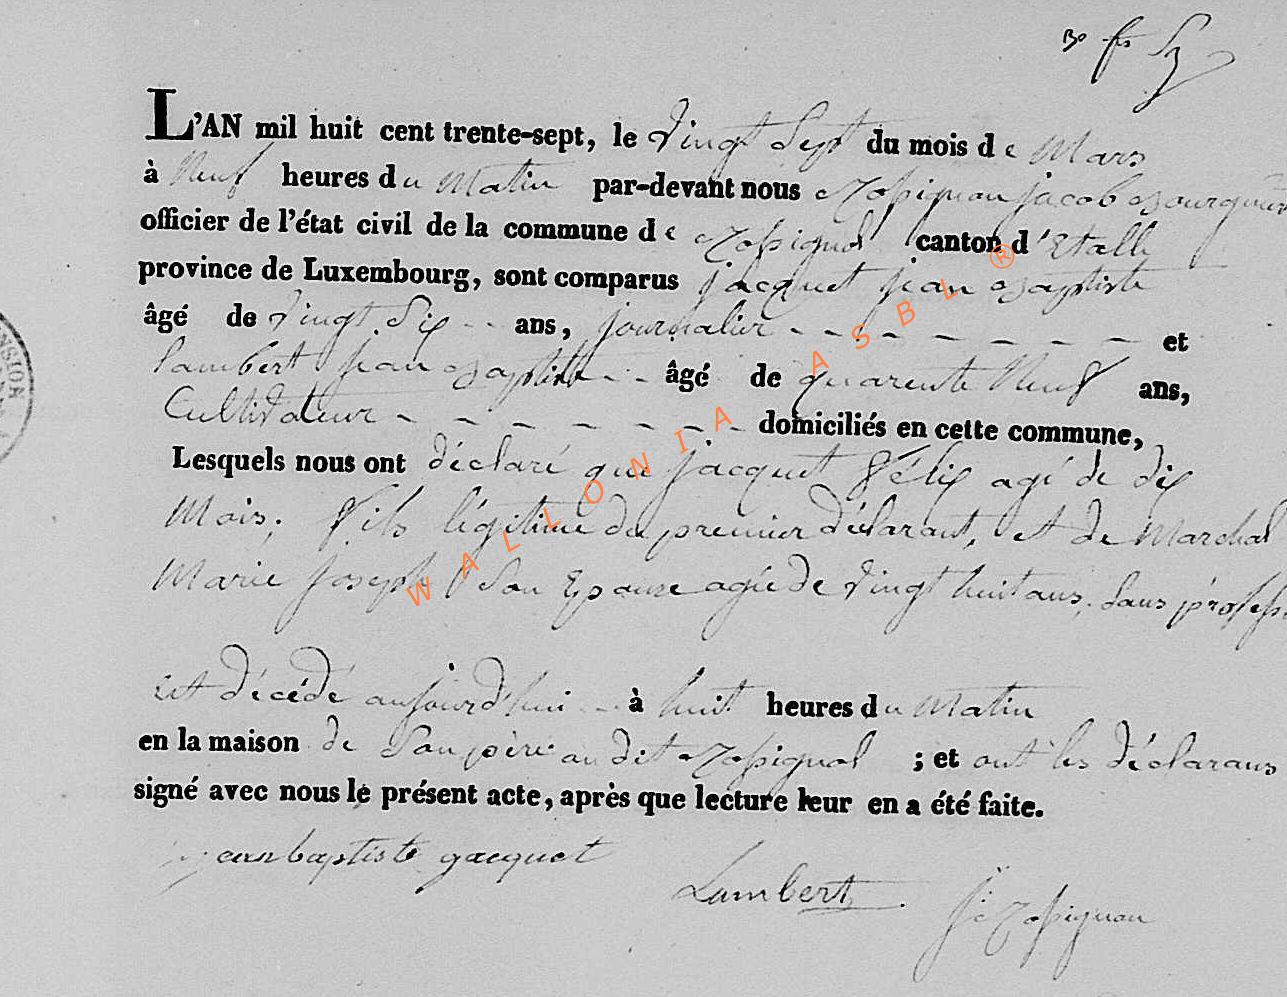 L'AN mil huit cent trente-sept, le Vingt Sept du mois de Mars
à Neuf heures du Matin par-devant nous Rossignon jacob
officier de l'état civil de la commune de Rossignol canton d'Etalle
province de Luxembourg, sont comparus jacquet jean Baptiste
âgé de Vingt Six ans, journalier et
Lambert jean Baptiste âgé de quarente Neuf ans,
Cultivateur domiciliés en cette commune,
Lesquels nous ont déclaré que jacquet Félix agé de dix
Mois, Fils légitime du premier déclarant, et de Marchal
Marie joseph Son Epouse agée de Vingt huit ans, Sans profess
Est décédé aujourd'hui à huit heures du Matin
en la maison de Son père au dit Rossignol ; et ont les déclarans
signé avec nous le présent acte, après que lecture leur en a été faite.
jean baptiste gacquet
Lambert
Rossignon
WALLONIA ASBL ®